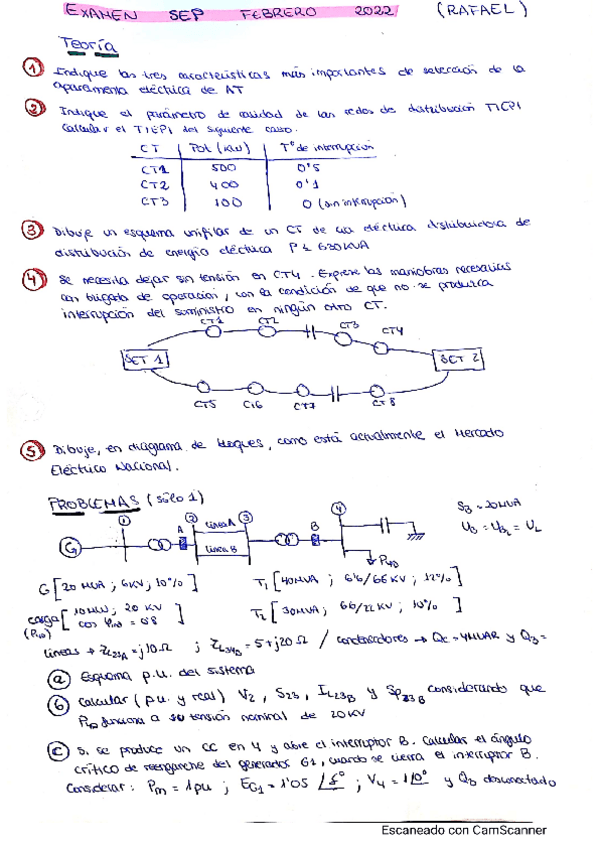 EXAMEN SEP FEBRERO 2022 (RAFAEL)
Teoría
1 Indique las tres características más importantes de selección de la
aparamenta eléctrica de AT
2 Indique el parámetro de calidad de las redes de distribución TIEPI
Calcular el TIEPI del siguiente caso.
CT Pot (kW) Tº de interrupción
CT1 500 0'5
CT2 400 0'1
CT3 100 0 (sin interrupción)
3 Dibuje un esquema unifilar de un CT de cia eléctrica distribuidora de
distribución de energía eléctrica P ≤ 630 kVA
4 Se necesita dejar sin tensión en CT4. Exprese las maniobras necesarias
con brigada de operación, con la condición de que no se produzca
interrupción del suministro en ningún otro CT.
CT1 CT2 CT3 CT4
SET 1 SET 2
CT5 CT6 CT7 CT8
5 Dibuje, en diagrama de bloques, como está actualmente el Mercado
Eléctrico Nacional.
PROBLEMAS (sólo 1)
1 2 3 4
A Línea A B
G Línea B
SB = 20 MVA
P4D
G [20 MVA ; 6KV ; 10%] T1 [40MVA ; 6'6/66 KV ; 12%]
carga [10MW ; 20 KV cos φ = 0'8] T2 [30MVA ; 66/22 KV ; 10%]
líneas → ZL23A = j10 Ω ; ZL23B = 5 + j20 Ω / condensadores → Qc = 4MVAR y Q3 =
a Esquema p.u. del sistema
b Calcular (p.u. y real) V2, S23, IL23B y Sp23B considerando que
funciona a su tensión nominal de 20KV
c Si se produce un CC en 4 y abre el interruptor B. Calcular el ángulo
crítico de reenganche del generador G1, cuando se cierra el interruptor B.
Considerar: Pm = 1pu ; EG1 = 1'05 ; V4 = 1/0° y desconectado
Escaneado con CamScanner